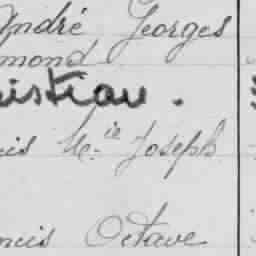 André Georges
mond
istian.
cis M.ie Joseph
ncis Octave